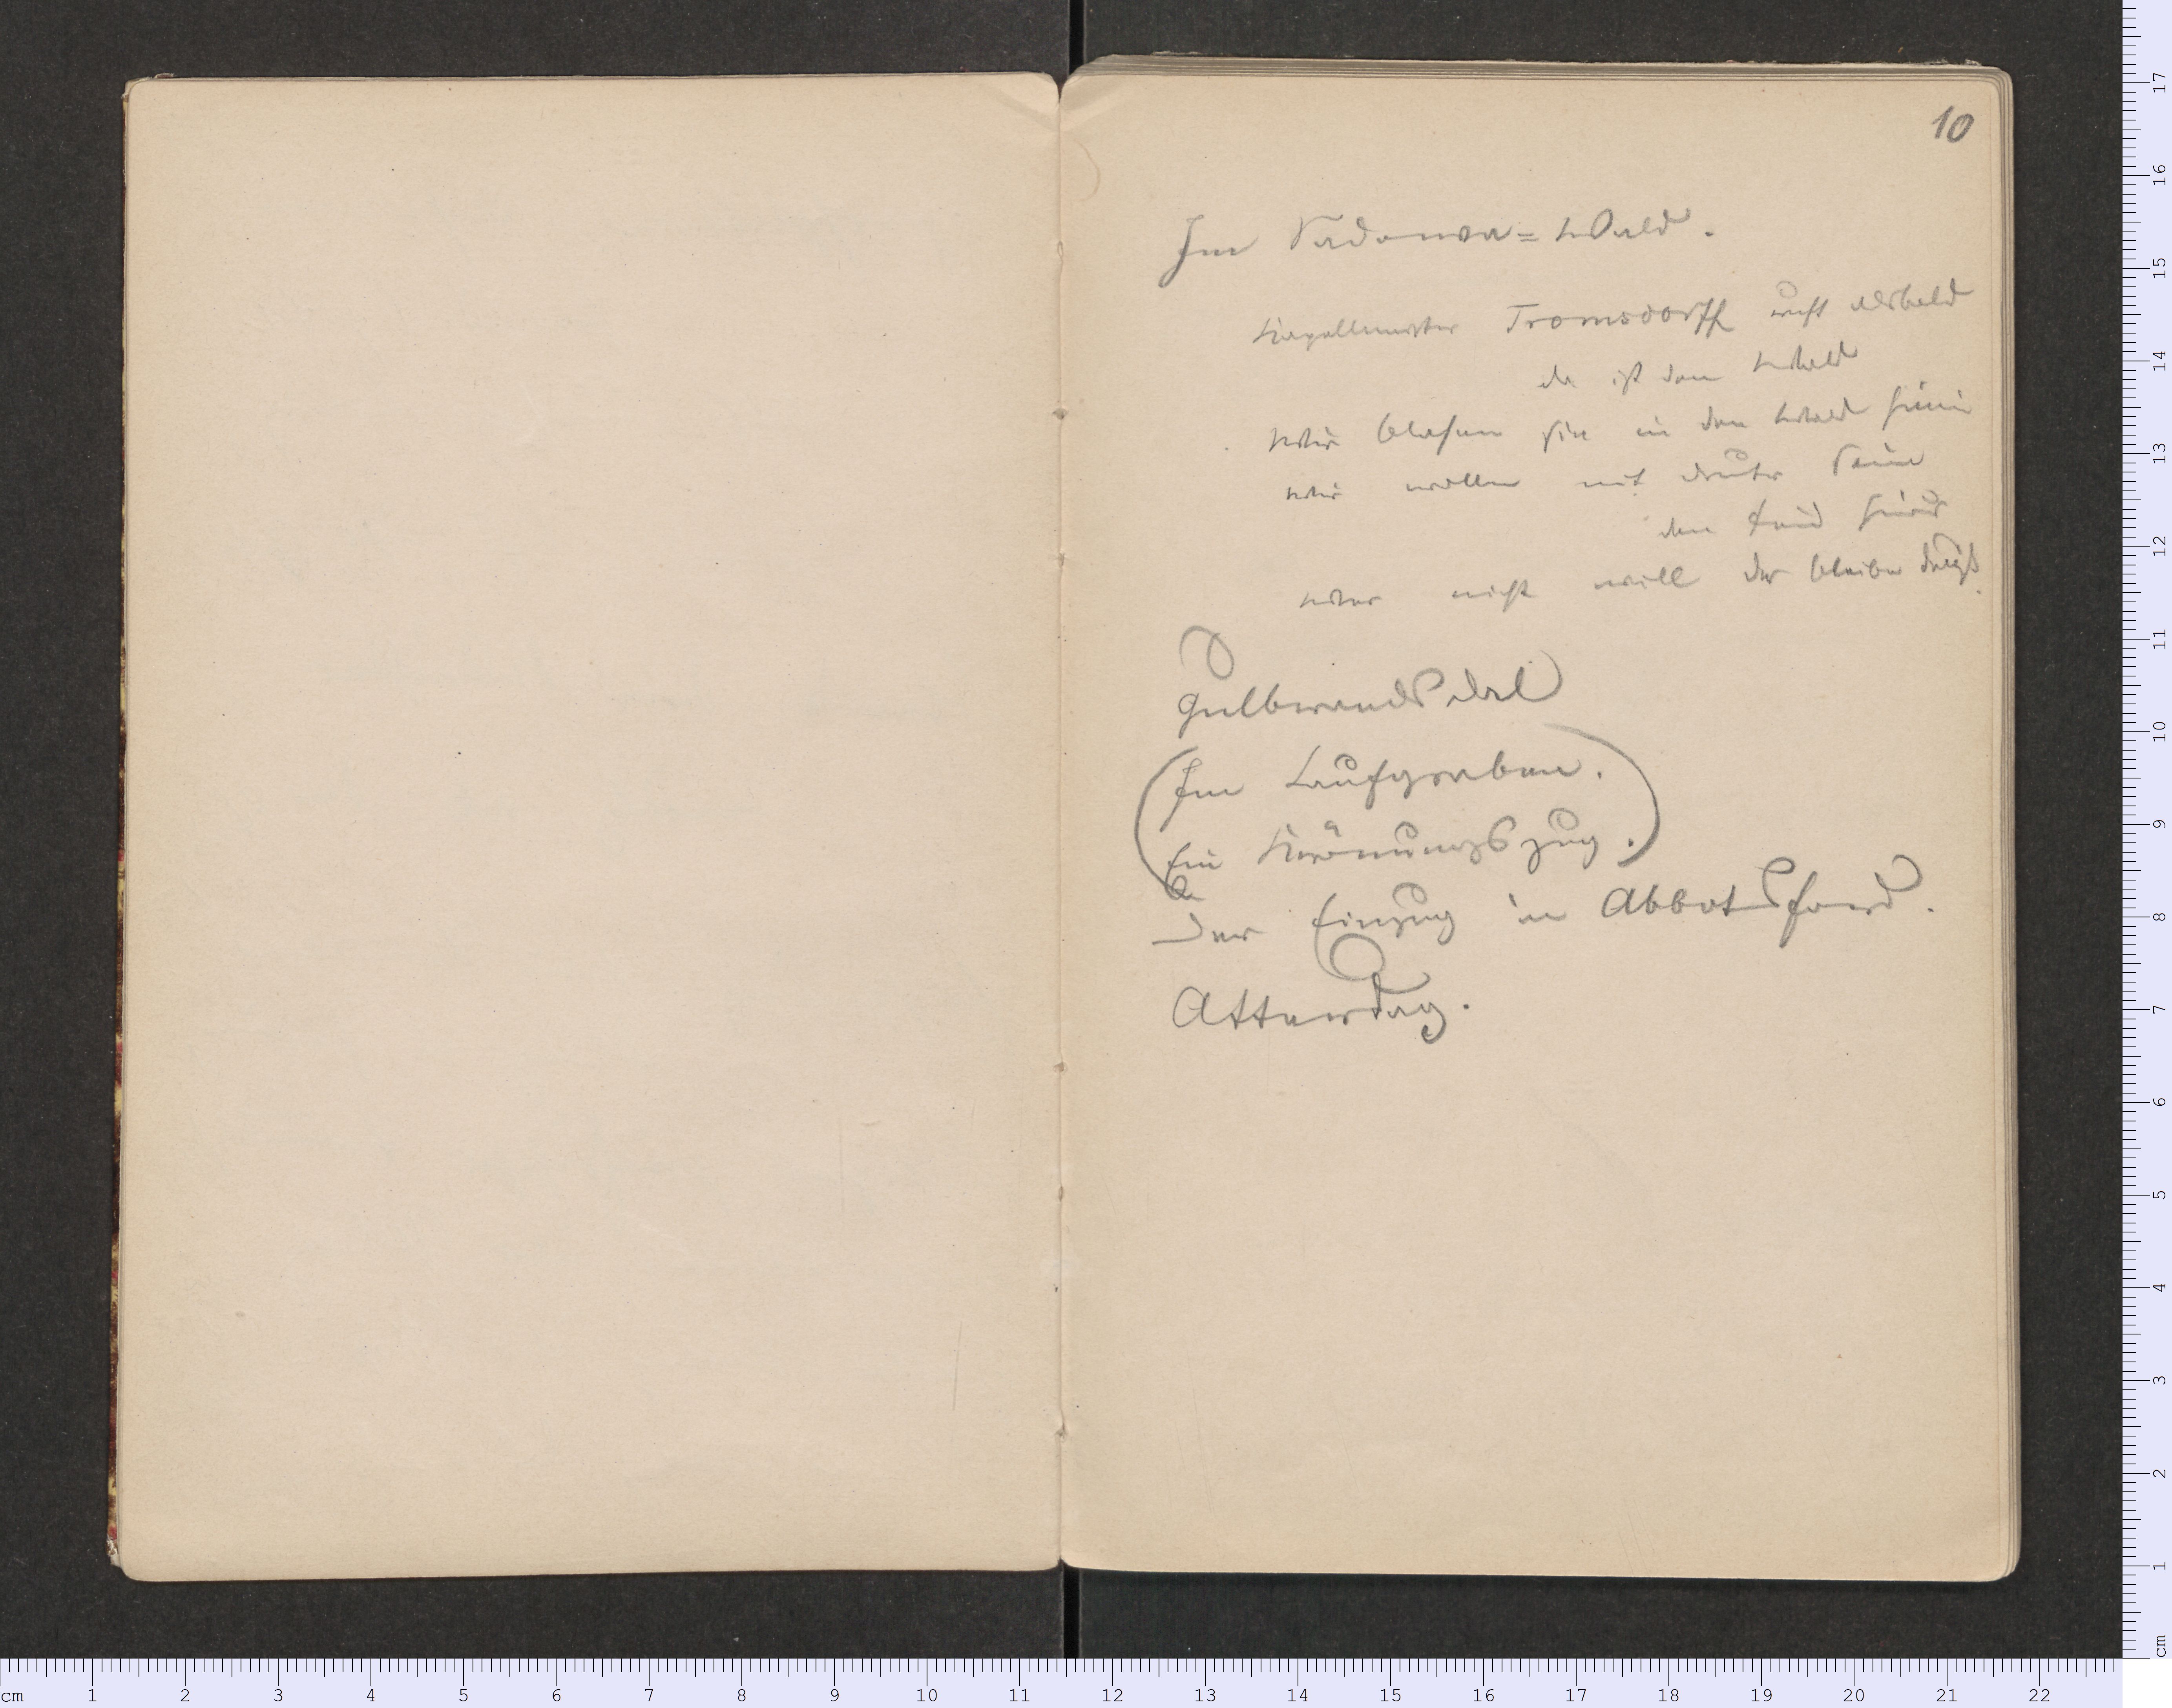 10
Im Sadowa=Wald.
Kapellmeister Tromsdorff ruft alsbald
da ist der Wald
Wir blasen sie in den Wald hinein
Wir wollen mit drunter sein
den
Wer nicht will der bleibe
Gulbrandsdal
(Im Laufgraben.
Ein Krönungszug.)
Der Einzug in Abbotsford.
Atterdag.
cm 1 2 3 4 5 6 7 8 9 10 11 12 13 14 15 16 17 18 19 20 21 22
cm 1 2 3 4 5 6 7 8 9 10 11 12 13 14 15 16 17